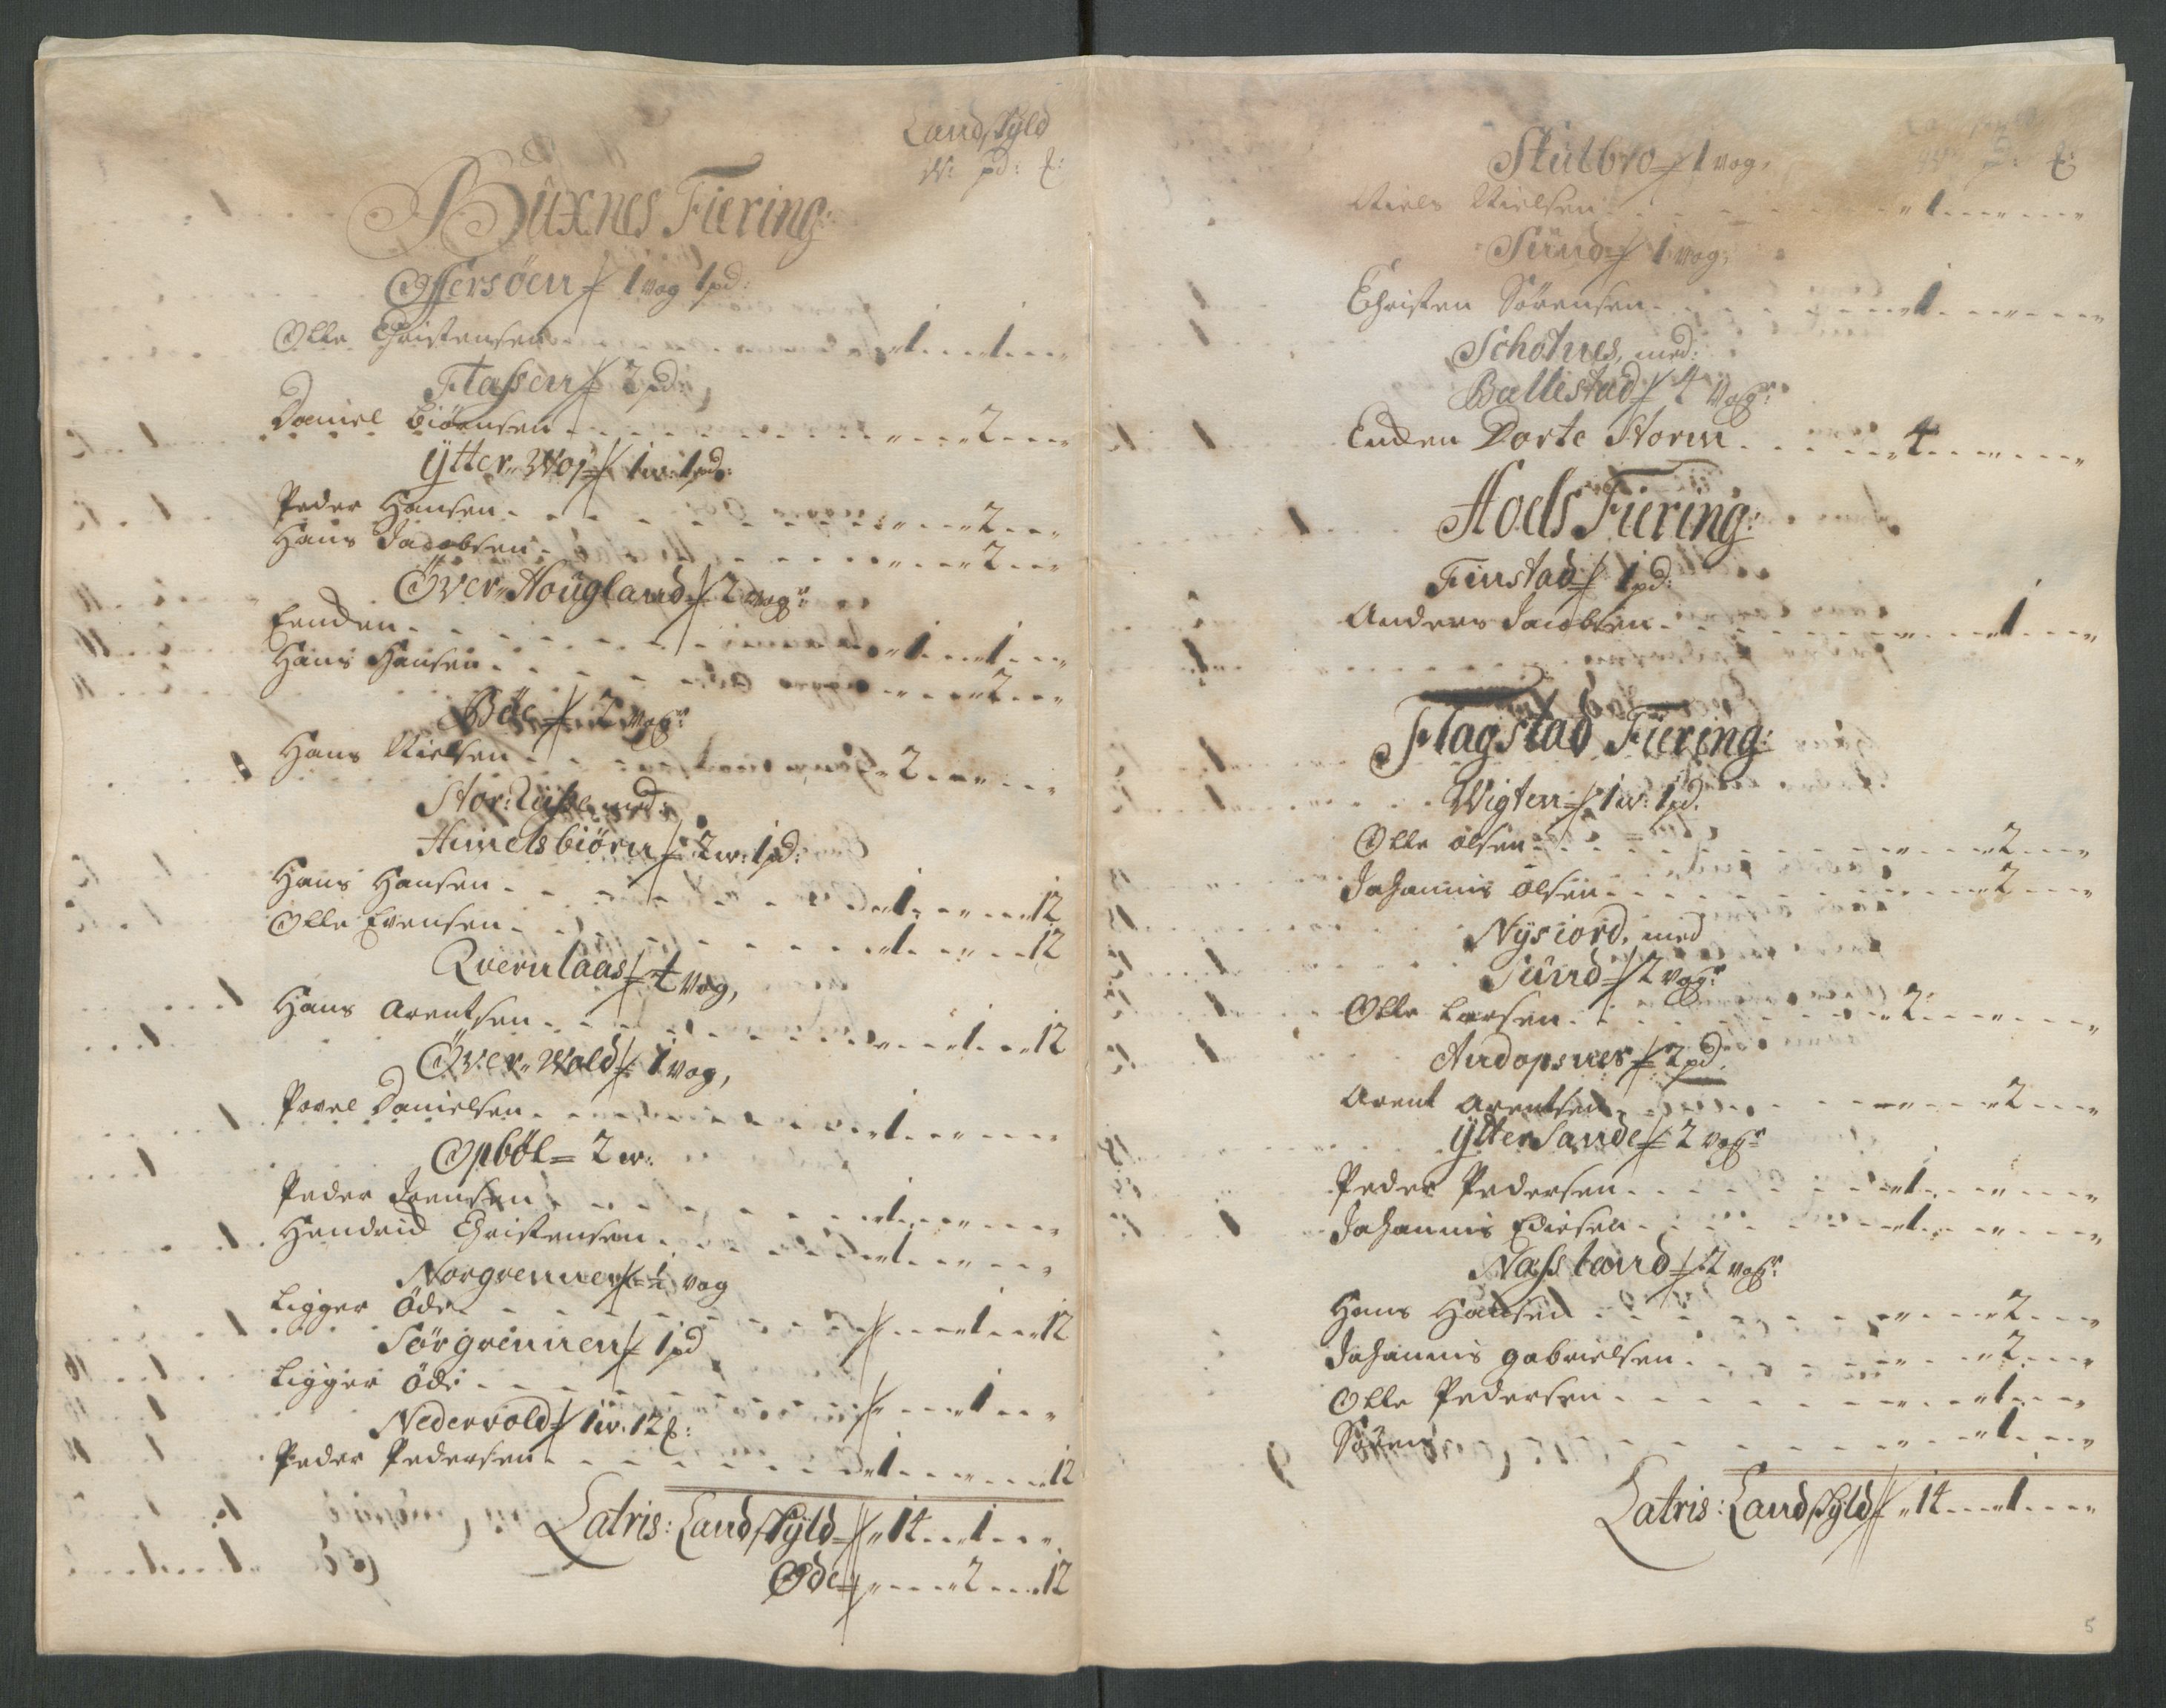 Landskyld
W: pd: ℔:
Buxnes Fiering:
Offersöen = 1 vog 1 pd:
Olle Christensen - - - 1 - - 1 - - -
Flassen = 2 pd:
Daniel Biörnsen - - - 2 - - -
Ytter Woj = 1 w: 1 pd:
Peder Hansen - - - 2 - - -
Hans Jacobsen - - - 2 - - -
Över Hougland = 2 vogr:
Enden - - - 1 - - 1 - - -
Hans Hansen - - - 2 - - -
Böe = 2 vogr:
Hans Nielsen - - - 2 - - -
Stor: med:
Himelsbiörn = 2 w: 1 pd:
Hans Hansen - - - 1 - - - 12
Olle Evensen - - - 1 - - - 12
Qvernlaas = vog,
Hans Arentsen - - - 1 - - 12
Över Wold = 1 vog,
Povel Danielsen - - - 1 - - -
Opböl = 2 w:
Peder Jensen - - - 1 - - -
Hendrich Christensen - - - 1 - - -
Norgrennen = ½ vog
Ligger Öde - - - 1 - - 12
Sörgrennen = 1 pd
Ligger Öde - - - 1 - - -
Nedervold = 1 w: 12 ℔:
Peder Pedersen - - - 1 - - - 12
Latris: Landskyld = 14 - - 1 - - -
Öde = - - - 2 - - 12
Stutbro = 1 vog,
℔:
Niels Nielsen - - - 1 - - -
Sund = 1 vog,
Christen Sörensen - - - 1 - - -
Schotnes, med:
Ballestad = 4 vogr:
Enken Dorte Storm - - - 4 - - -
Hoels Fiering:
Finstad = 1 pd:
Anders Jacobsen - - - 1 - - -
Flagstad Fiering:
Wigten = 1 w: 1 pd.
Olle Olsen - - - 2 - - -
Johannis Olsen - - - 2 - - -
Nysiord, med
Sund = 2 vogr:
Olle Larsen - - - 2 - - -
Andopsnes = 2 pd.
Arent Arentsen - - - 2 - - -
Ytter Sande = 2 vogr
Peder Pedersen - - - 1 - - -
Johannis Ediesen - - - 1 - - -
Nassland = 2 vogr:
Hans Hansen - - - 2 - - -
Johannis Gabrielsen - - - 2 - - -
Olle Pedersen - - - 1 - - -
Sören - - - 1 - - -
Latris: Landskyld = 14 - - 1 - - -
5